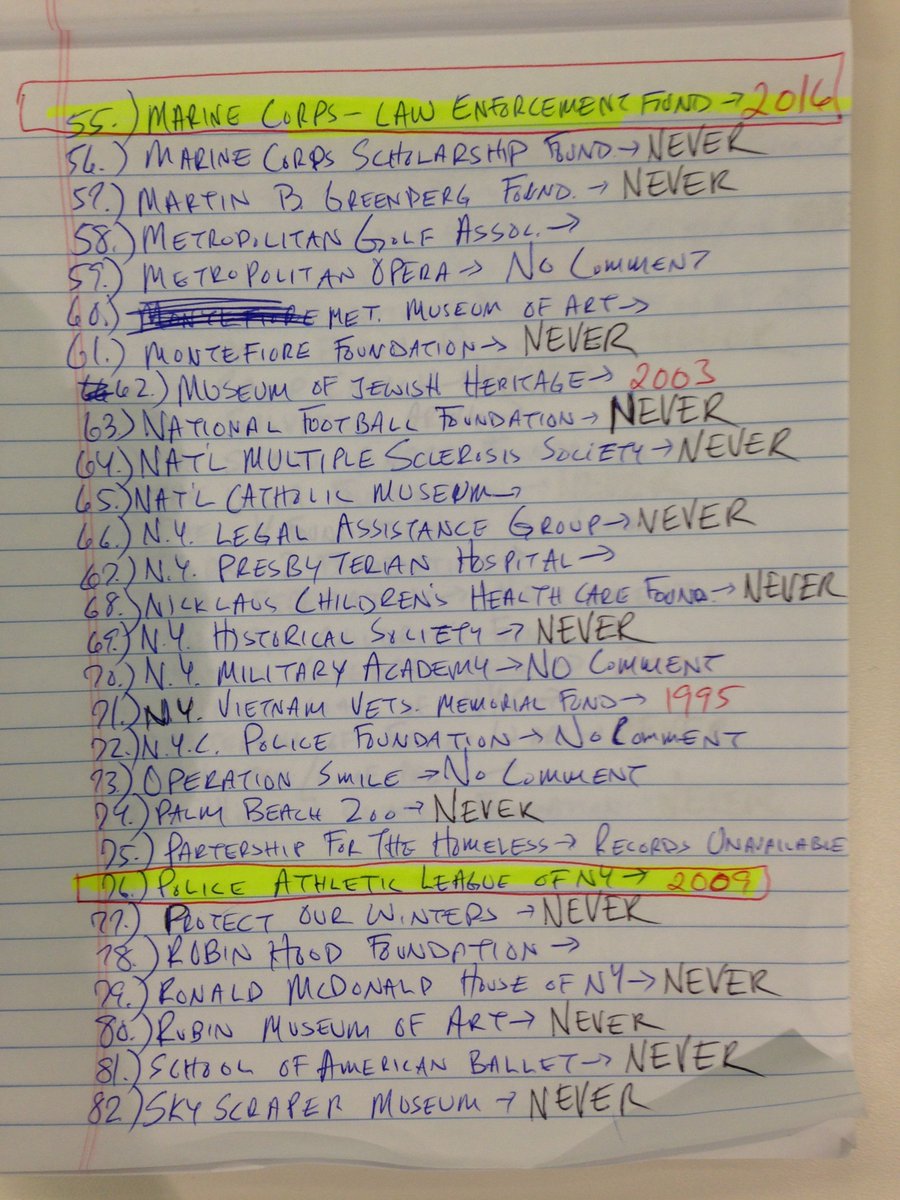 55.) MARINE CORPS - LAW ENFORCEMENT FUND → 2016
56.) MARINE CORPS SCHOLARSHIP FOUND. → NEVER
57.) MARTIN B GREENBERG FOUND. → NEVER
58.) METROPOLITAN GOLF ASSOC. →
59.) METROPOLITAN OPERA → NO COMMENT
60.) MONTEFIORE MET. MUSEUM OF ART →
61.) MONTEFIORE FOUNDATION → NEVER
62.) MUSEUM OF JEWISH HERITAGE → 2003
63.) NATIONAL FOOTBALL FOUNDATION → NEVER
64.) NAT'L MULTIPLE SCLEROSIS SOCIETY → NEVER
65.) NAT'L CATHOLIC MUSEUM →
66.) N.Y. LEGAL ASSISTANCE GROUP → NEVER
67.) N.Y. PRESBYTERIAN HOSPITAL →
68.) NICKLAUS CHILDREN'S HEALTH CARE FOUND. → NEVER
69.) N.Y. HISTORICAL SOCIETY → NEVER
70.) N.Y. MILITARY ACADEMY → NO COMMENT
71.) N.Y. VIETNAM VETS. MEMORIAL FUND → 1995
72.) N.Y.C. POLICE FOUNDATION → NO COMMENT
73.) OPERATION SMILE → NO COMMENT
74.) PALM BEACH ZOO → NEVER
75.) PARTERSHIP FOR THE HOMELESS → RECORDS UNAVAILABLE
76.) POLICE ATHLETIC LEAGUE OF NY → 2009
77.) PROTECT OUR WINTERS → NEVER
78.) ROBIN HOOD FOUNDATION →
79.) RONALD MCDONALD HOUSE OF NY → NEVER
80.) RUBIN MUSEUM OF ART → NEVER
81.) SCHOOL OF AMERICAN BALLET → NEVER
82.) SKYSCRAPER MUSEUM → NEVER